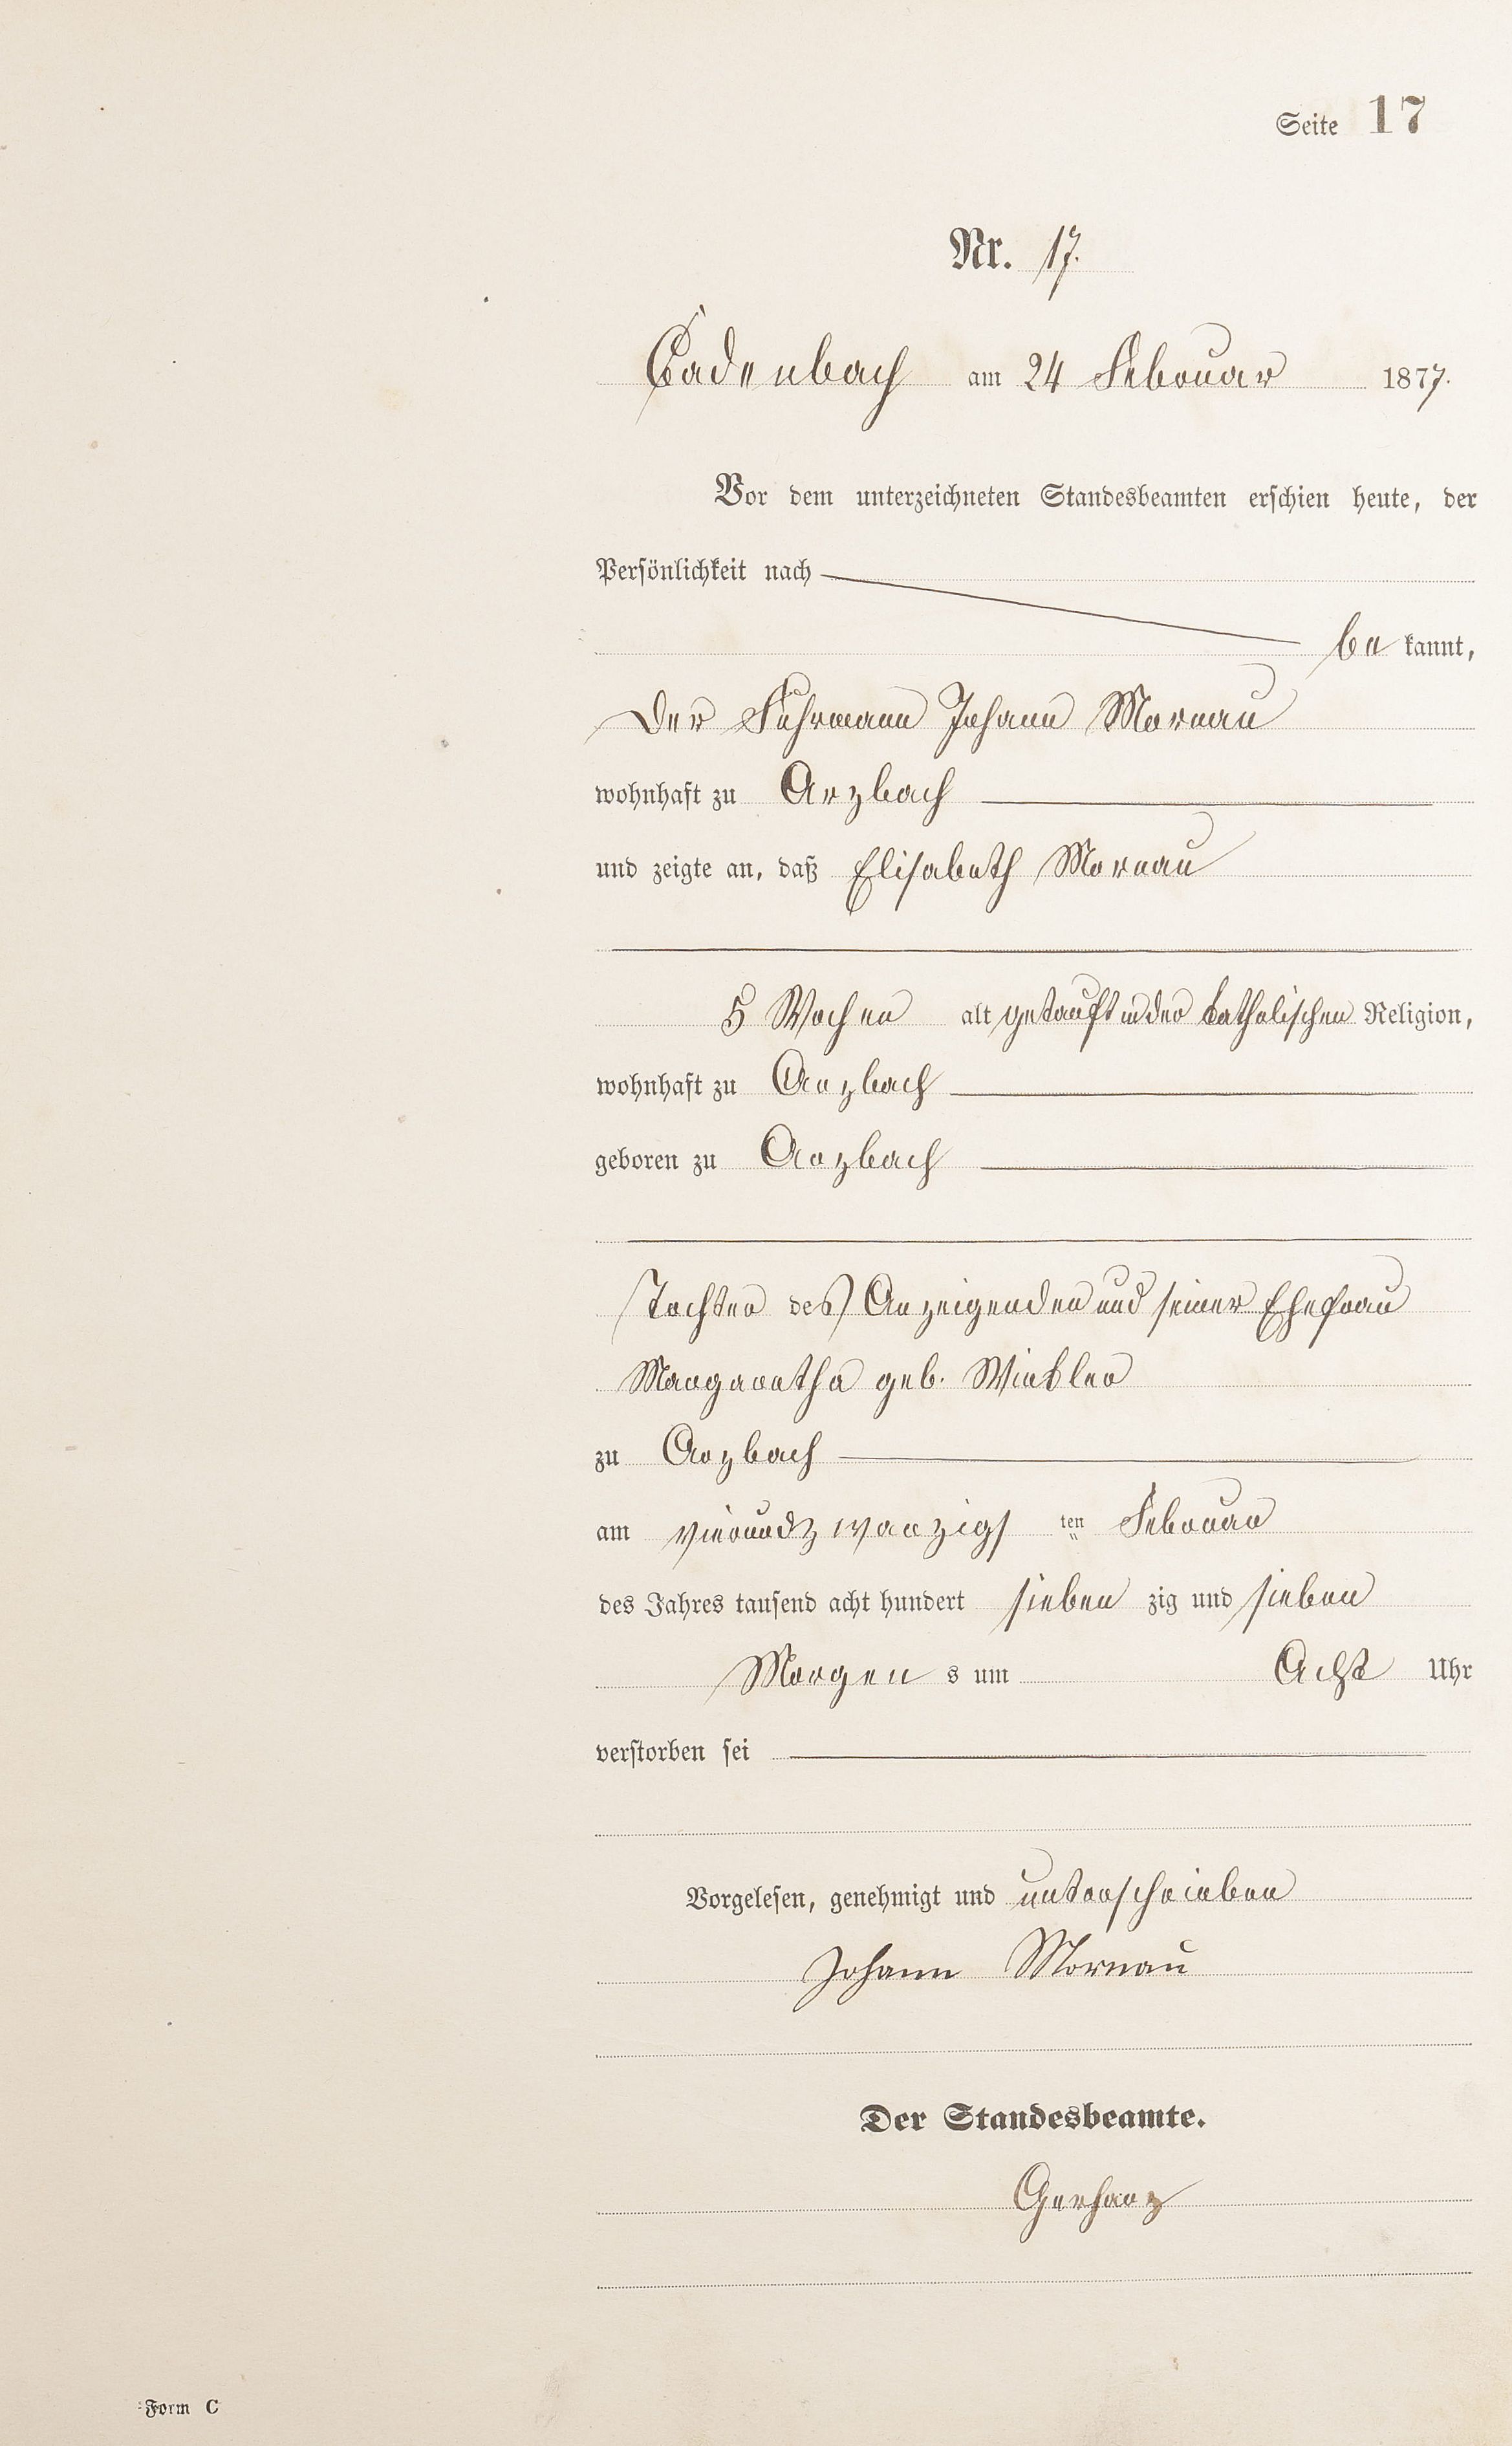 Seite 17
Nr. 17.
Cadenbach am 24 Februar 1877.
Vor dem unterzeichneten Standesbeamten erschien heute, der
Persönlichkeit nach
be kannt,
der Fuhrmann Johann Mornau
wohnhaft zu Arzbach
und zeigte an, daß Elisabeth Mornau
5 Wochen alt getauft in der katholischen Religion,
wohnhaft zu Arzbach
geboren zu Arzbach
Tochter des Anzeigenden und seiner Ehefrau
Margaretha geb. Winkler
zu Arzbach
am vierundzwanzigs ten Februar
des Jahres tausend acht hundert sieben zig und sieben
Morgen s um Acht Uhr
verstorben sei
Vorgelesen, genehmigt und unterschrieben
Johann Mornau
Der Standesbeamte.
Gerharz
Form C